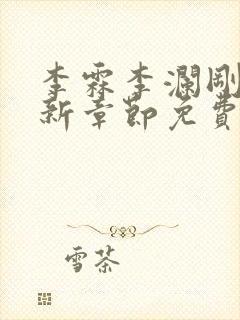 李霖李瀾剛
新章節免費
雪茶